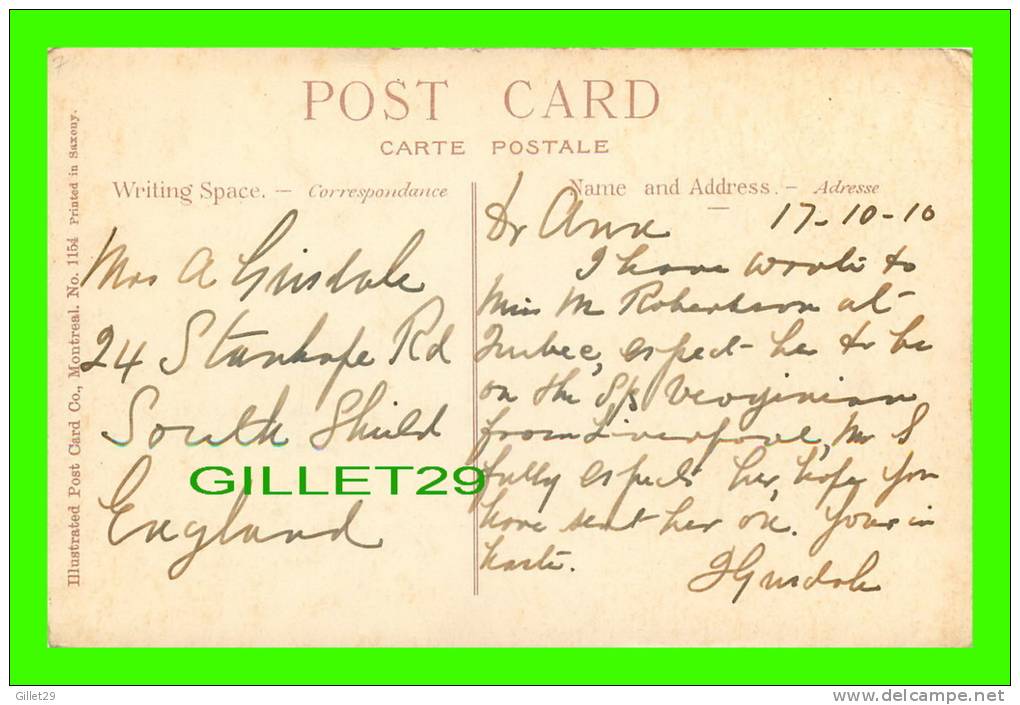 POST CARD
CARTE POSTALE
Writing Space. — Correspondance
Name and Address. — Adresse
Illustrated Post Card Co., Montreal. No. 1154 Printed in Saxony.
Mrs A Grisdale
24 Stanhope Rd
South Shield
England
Dr Anna 17-10-10
I have wrote to
Miss M Robertson at
Quebec, espect her to be
on the S/s Verginian
from Liverpool, Mr S
fully espects her, hope you
have sent her on. Yours in
haste.
J Grisdale
GILLET29
Gillet29
www.delcampe.net